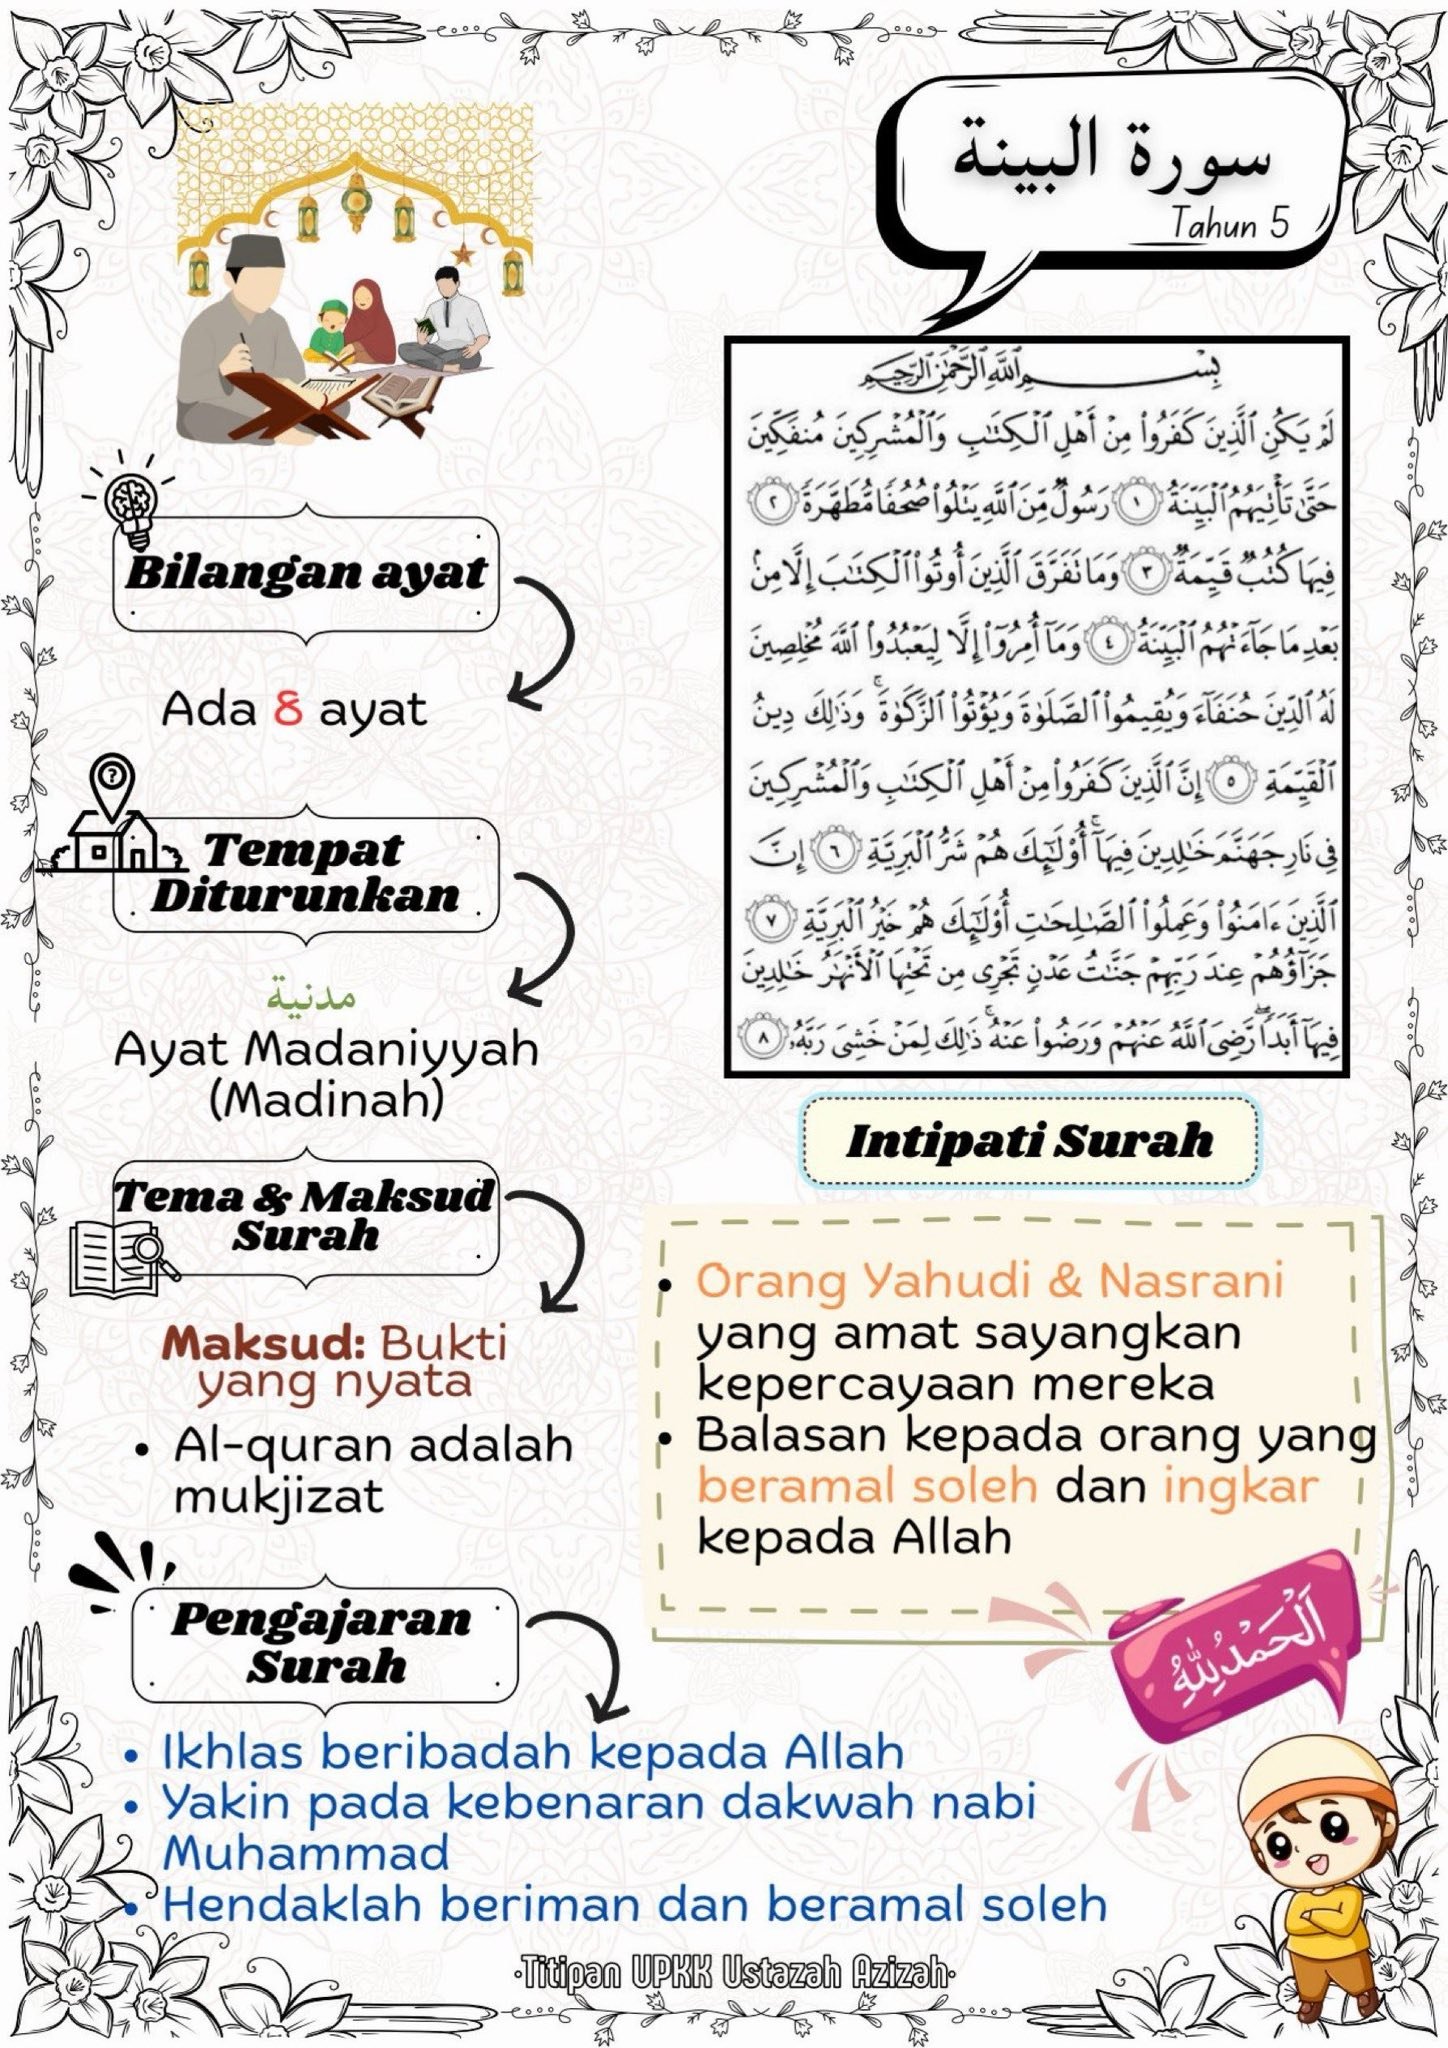 سورة البينة
Tahun 5
بِسْمِ ٱللَّهِ ٱلرَّحْمَٰنِ ٱلرَّحِيمِ
لَمْ يَكُنِ ٱلَّذِينَ كَفَرُوا۟ مِنْ أَهْلِ ٱلْكِتَٰبِ وَٱلْمُشْرِكِينَ مُنفَكِّينَ
حَتَّىٰ تَأْتِيَهُمُ ٱلْبَيِّنَةُ ١ رَسُولٌ مِّنَ ٱللَّهِ يَتْلُوا۟ صُحُفًا مُّطَهَّرَةً ٢
فِيهَا كُتُبٌ قَيِّمَةٌ ٣ وَمَا تَفَرَّقَ ٱلَّذِينَ أُوتُوا۟ ٱلْكِتَٰبَ إِلَّا مِنۢ
بَعْدِ مَا جَآءَتْهُمُ ٱلْبَيِّنَةُ ٤ وَمَآ أُمِرُوٓا۟ إِلَّا لِيَعْبُدُوا۟ ٱللَّهَ مُخْلِصِينَ
لَهُ ٱلدِّينَ حُنَفَآءَ وَيُقِيمُوا۟ ٱلصَّلَوٰةَ وَيُؤْتُوا۟ ٱلزَّكَوٰةَ ۚ وَذَٰلِكَ دِينُ
ٱلْقَيِّمَةِ ٥ إِنَّ ٱلَّذِينَ كَفَرُوا۟ مِنْ أَهْلِ ٱلْكِتَٰبِ وَٱلْمُشْرِكِينَ
فِى نَارِ جَهَنَّمَ خَٰلِدِينَ فِيهَآ ۚ أُو۟لَٰٓئِكَ هُمْ شَرُّ ٱلْبَرِيَّةِ ٦ إِنَّ
ٱلَّذِينَ ءَامَنُوا۟ وَعَمِلُوا۟ ٱلصَّٰلِحَٰتِ أُو۟لَٰٓئِكَ هُمْ خَيْرُ ٱلْبَرِيَّةِ ٧
جَزَآؤُهُمْ عِندَ رَبِّهِمْ جَنَّٰتُ عَدْنٍ تَجْرِى مِن تَحْتِهَا ٱلْأَنْهَٰرُ خَٰلِدِينَ
فِيهَآ أَبَدًا ۖ رَّضِىَ ٱللَّهُ عَنْهُمْ وَرَضُوا۟ عَنْهُ ۚ ذَٰلِكَ لِمَنْ خَشِىَ رَبَّهُۥ ٨
Bilangan ayat
Ada 8 ayat
Tempat
Diturunkan
مدنية
Ayat Madaniyyah
(Madinah)
Tema & Maksud
Surah
Maksud: Bukti
yang nyata
• Al-quran adalah
mukjizat
Intipati Surah
• Orang Yahudi & Nasrani
yang amat sayangkan
kepercayaan mereka
• Balasan kepada orang yang
beramal soleh dan ingkar
kepada Allah
اَلْحَمْدُ لِلّٰهِ
Pengajaran
Surah
• Ikhlas beribadah kepada Allah
• Yakin pada kebenaran dakwah nabi
Muhammad
• Hendaklah beriman dan beramal soleh
·Titipan UPKK Ustazah Azizah·